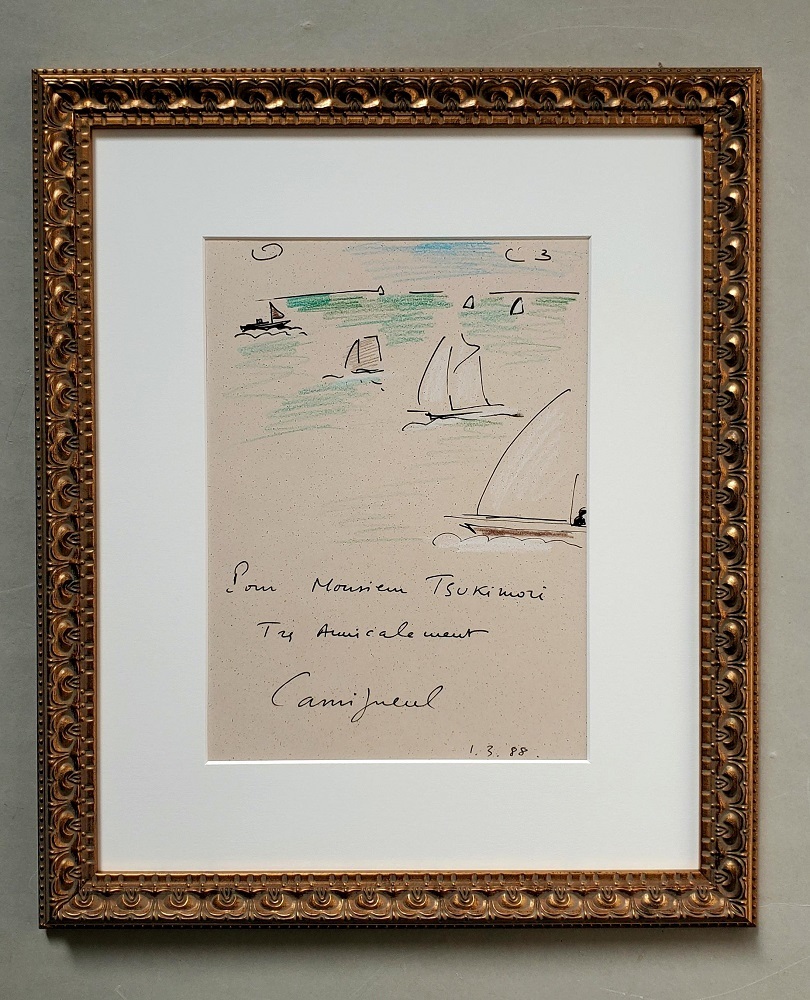 Pour Monsieur TSUKimori
Très Amicalement
Cassigneul
1.3.88.